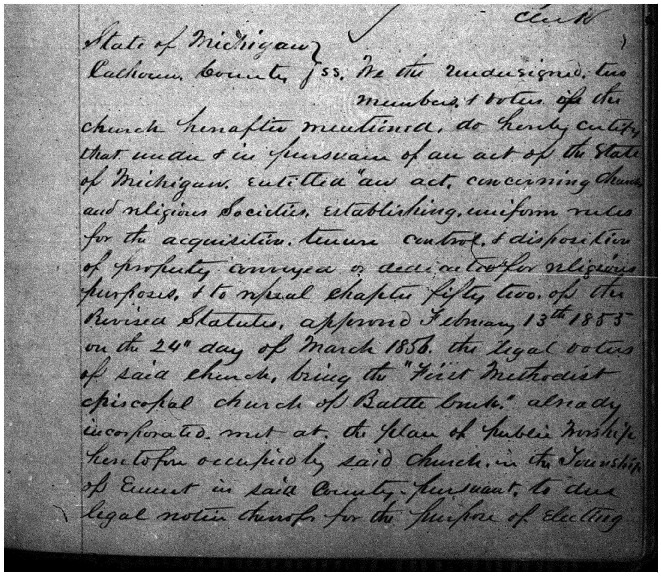 Clerk
State of Michigan }
Calhoun County } ss. We the undersigned, two
members, & voters of the
church hereafter mentioned, do hereby certify
that under & in pursuance of an act of the State
of Michigan. entitled "an act, concerning Churches
and religious Societies, establishing, uniform rules
for the acquisition, tenure control, & disposition
of property conveyed or dedicated for religious
purposes, & to repeal chapter fifty two, of the
Revised Statutes, approved February 13th 1855
on the 24" day of March 1856. the legal voters
of said church, being the "First Methodist
episcopal church of Battle Creek." already
incorporated. met at. the place of public Worship
heretofore occupied by said church, in the Township
of Emmet in said County. pursuant, to due
legal notice thereof for the purpose of electing